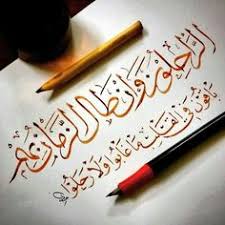 الراحلون وان طال الزمان بهم
باقون في القلب ما غابوا ولا رحلوا